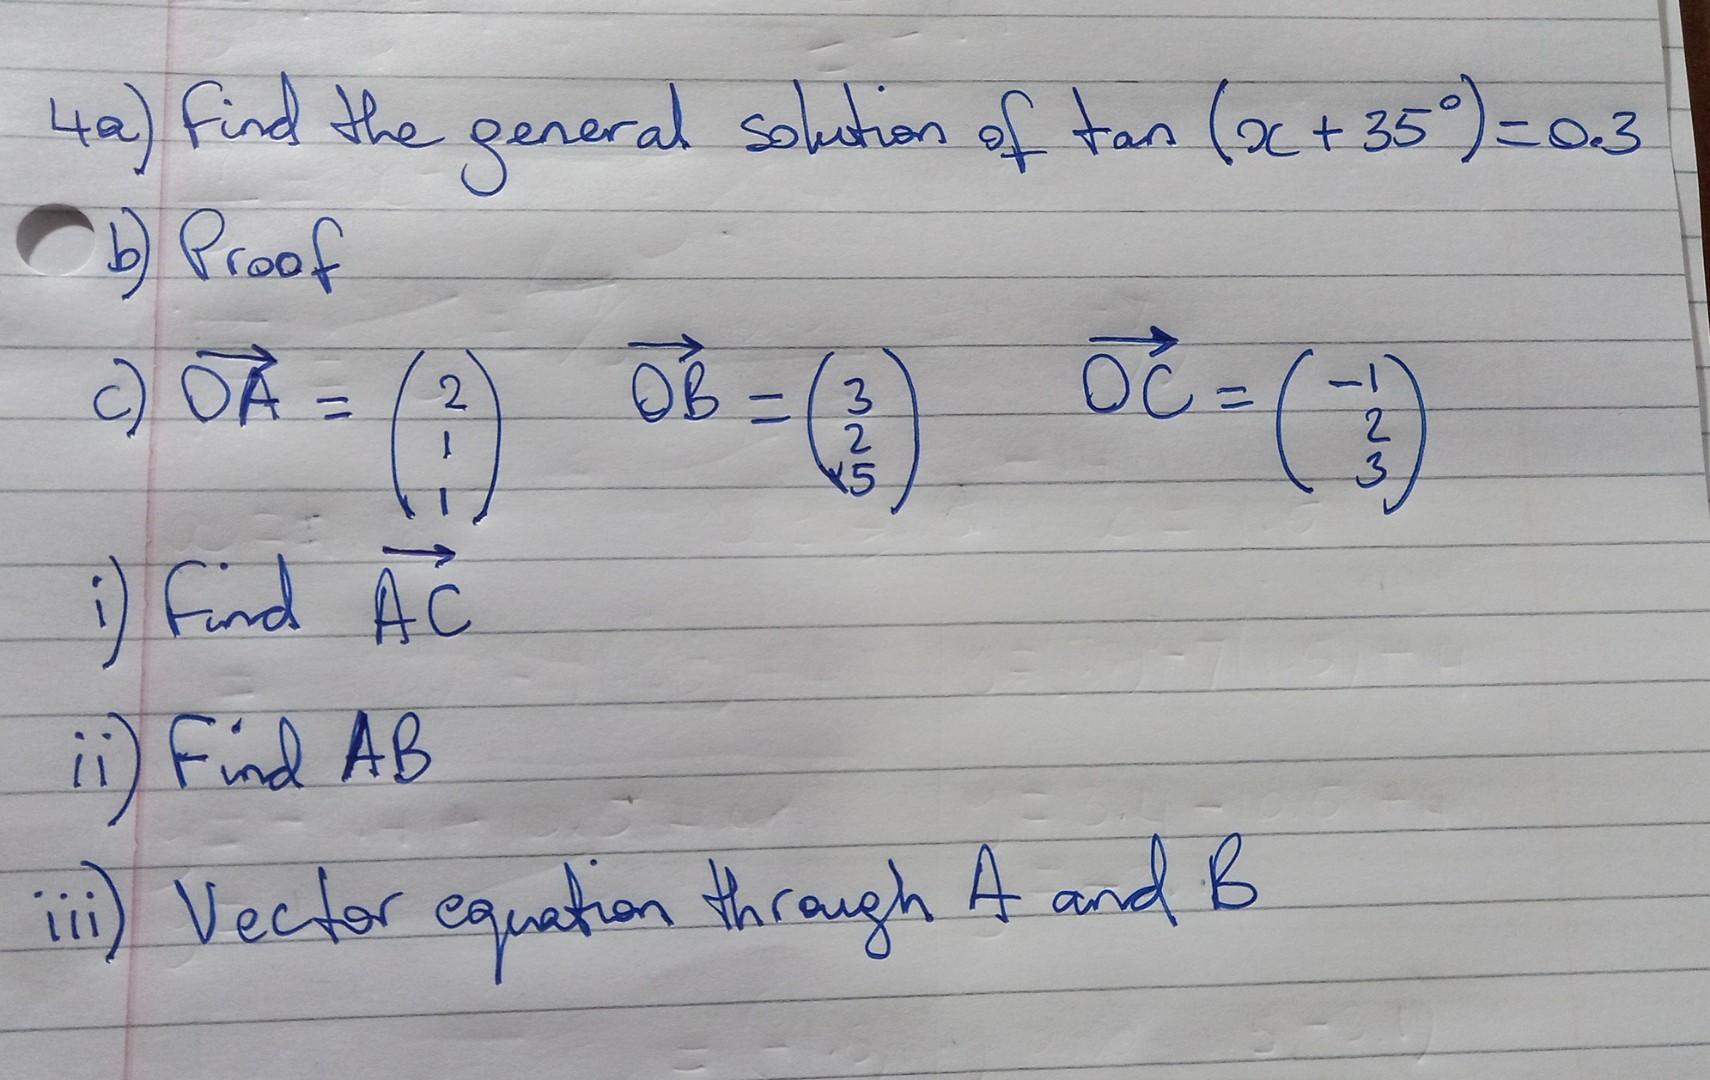 4a) Find the general solution of tan (x + 35°) = 0.3
b) Proof
c) OA→ = (2 1 1) OB→ = (3 2 5) OC→ = (-1 2 3)
i) Find AC→
ii) Find AB
iii) Vector equation through A and B